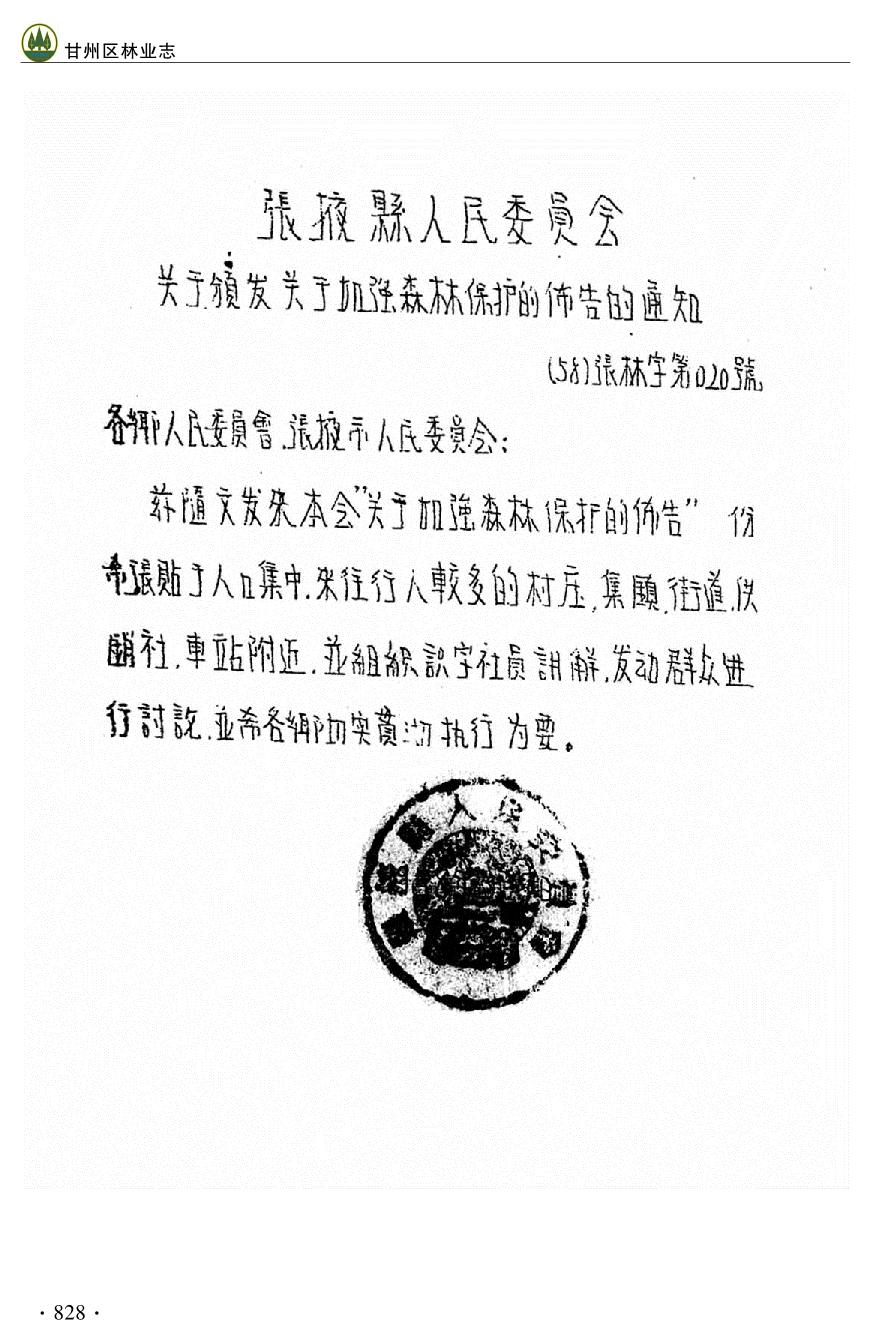 甘州区林业志
張掖縣人民委員会
关于頒发关于加强森林保护的佈告的通知
(58)張林字第020號
各鄉人民委員會、張掖市人民委員会:
茲隨文发来本会"关于加强森林保护的佈告" 份
希張貼于人口集中、来往行人較多的村庄、集鎮、街道、供
銷社、車站附近、並組織識字社員講解、发动群众进
行討論、並希各鄉切实貫彻执行为要。
人民委員會
·828·